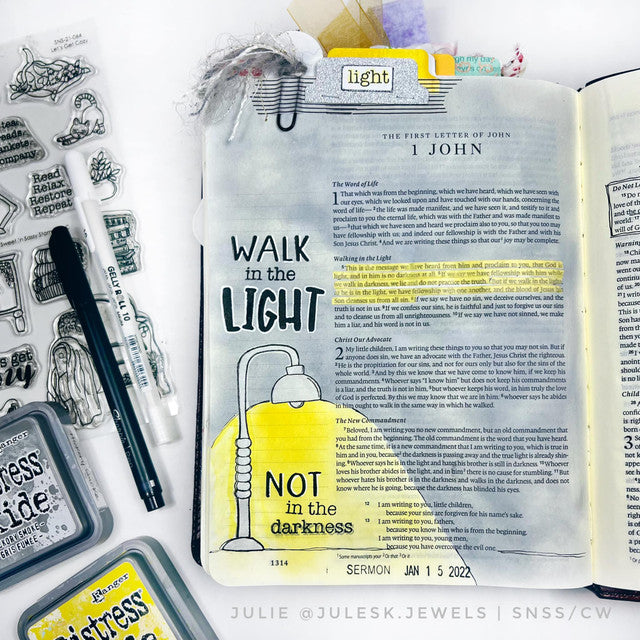 SNS-21-064
Let's Get Cozy
company
Read
Relax
Restore
Repeat
Sweet 'n Sassy Stamps
GELLY ROLL 10
Ranger
Distress
Oxide
HICKORY SMOKE
Ranger
Distress
light
THE FIRST LETTER OF JOHN
1 JOHN
The Word of Life
1 That which was from the beginning, which we have heard, which we have seen with
our eyes, which we looked upon and have touched with our hands, concerning the
word of life— ² the life was made manifest, and we have seen it, and testify to it and
proclaim to you the eternal life, which was with the Father and was made manifest to
us— ³ that which we have seen and heard we proclaim also to you, so that you too may
have fellowship with us; and indeed our fellowship is with the Father and with his
Son Jesus Christ. ⁴ And we are writing these things so that our¹ joy may be complete.
Walking in the Light
⁵ This is the message we have heard from him and proclaim to you, that God is
light, and in him is no darkness at all. ⁶ If we say we have fellowship with him while
we walk in darkness, we lie and do not practice the truth. ⁷ But if we walk in the light,
as he is in the light, we have fellowship with one another, and the blood of Jesus his
Son cleanses us from all sin. ⁸ If we say we have no sin, we deceive ourselves, and the
truth is not in us. ⁹ If we confess our sins, he is faithful and just to forgive us our sins
and to cleanse us from all unrighteousness. ¹⁰ If we say we have not sinned, we make
him a liar, and his word is not in us.
Christ Our Advocate
2 My little children, I am writing these things to you so that you may not sin. But if
anyone does sin, we have an advocate with the Father, Jesus Christ the righteous.
² He is the propitiation for our sins, and not for ours only but also for the sins of the
whole world. ³ And by this we know that we have come to know him, if we keep his
commandments. ⁴ Whoever says "I know him" but does not keep his commandments
is a liar, and the truth is not in him, ⁵ but whoever keeps his word, in him truly the love
of God is perfected. By this we may know that we are in him: ⁶ whoever says he abides
in him ought to walk in the same way in which he walked.
The New Commandment
⁷ Beloved, I am writing you no new commandment, but an old commandment that
you had from the beginning. The old commandment is the word that you have heard.
⁸ At the same time, it is a new commandment that I am writing to you, which is true in
him and in you, because the darkness is passing away and the true light is already shin-
ing. ⁹ Whoever says he is in the light and hates his brother is still in darkness. ¹⁰ Whoever
loves his brother abides in the light, and in him² there is no cause for stumbling. ¹¹ But
whoever hates his brother is in the darkness and walks in the darkness, and does not
know where he is going, because the darkness has blinded his eyes.
12 I am writing to you, little children,
because your sins are forgiven for his name's sake.
13 I am writing to you, fathers,
because you know him who is from the beginning.
I am writing to you, young men,
because you have overcome the evil one.
¹ Some manuscripts your ² Or that ³ Or it
1314
WALK
in the
LIGHT
NOT
in the
darkness
SERMON JAN 15 2022
JULIE @JULESK.JEWELS | SNSS/CW